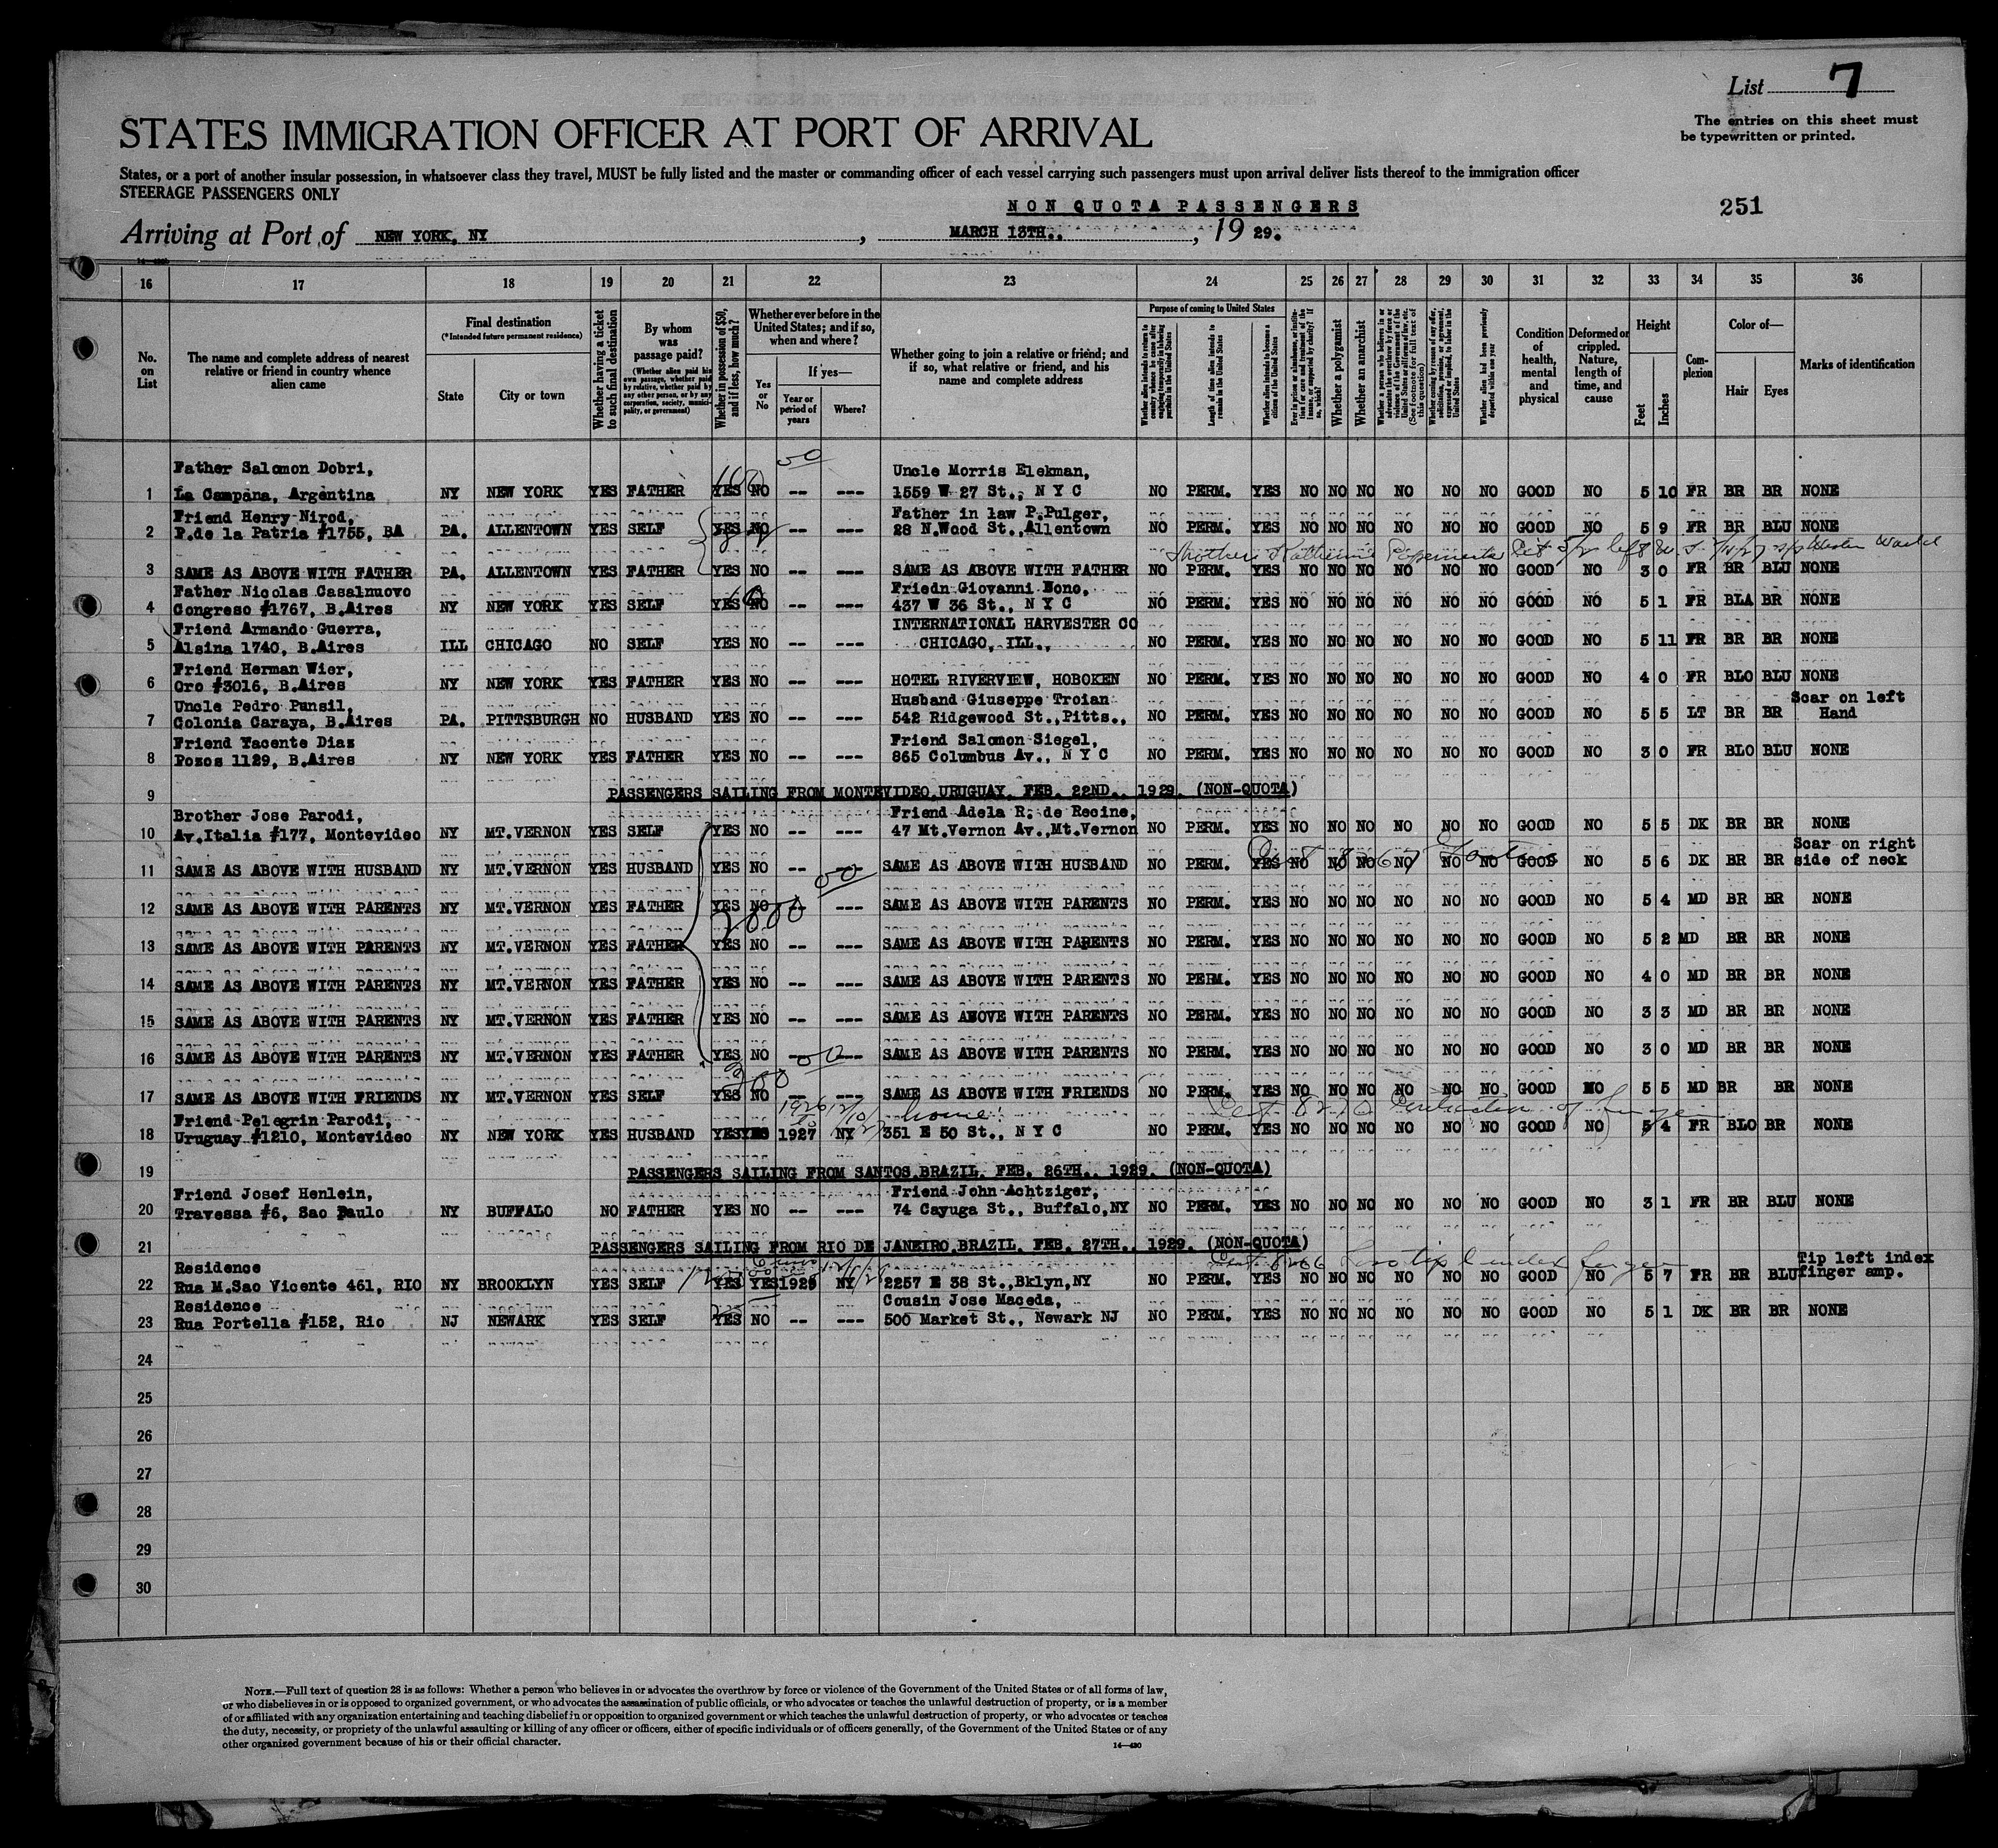 List 7
The entries on this sheet must
be typewritten or printed.
STATES IMMIGRATION OFFICER AT PORT OF ARRIVAL
States, or a port of another insular possession, in whatsoever class they travel, MUST be fully listed and the master or commanding officer of each vessel carrying such passengers must upon arrival deliver lists thereof to the immigration officer
STEERAGE PASSENGERS ONLY
NON QUOTA PASSENGERS
251
Arriving at Port of NEW YORK, NY, MARCH 13TH., 1929.
16 17 18 19 20 21 22 23 24 25 26 27 28 29 30 31 32 33 34 35 36
No. on List
The name and complete address of nearest relative or friend in country whence alien came
Final destination
(*Intended future permanent residence)
State
City or town
Whether having a ticket to such final destination
By whom was passage paid?
(Whether alien paid his own passage, whether paid by relative, whether paid by any other person, or by any corporation, society, municipality, or government)
Whether in possession of $50, and if less, how much?
Whether ever before in the United States; and if so, when and where?
Yes or No
If yes—
Year or period of years
Where?
Whether going to join a relative or friend; and if so, what relative or friend, and his name and complete address
Purpose of coming to United States
Length of time alien intends to remain in the United States
Whether alien intends to become a citizen of the United States
Whether a polygamist
Whether an anarchist
Condition of health, mental and physical
Deformed or crippled. Nature, length of time, and cause
Height
Feet
Inches
Complexion
Color of—
Hair
Eyes
Marks of identification
Father Salomon Dobri, Uncle Morris Elekman,
1 La Campana, Argentina NY NEW YORK YES FATHER YES NO -- --- 1559 W 27 St., N Y C NO PERM. YES NO NO NO NO NO NO GOOD NO 5 10 FR BR BR NONE
Friend Henry Nirod, Father in law P.Pulger,
2 P.de la Patria #1755, BA PA. ALLENTOWN YES SELF YES NO -- --- 28 N.Wood St., Allentown NO PERM. YES NO NO NO NO NO NO GOOD NO 5 9 FR BR BLU NONE
3 SAME AS ABOVE WITH FATHER PA. ALLENTOWN YES FATHER YES NO -- --- SAME AS ABOVE WITH FATHER NO PERM. YES NO NO NO NO NO NO GOOD NO 3 0 FR BR BLU NONE
Father Nicolas Casalnuovo Friedn Giovanni Bono,
4 Congreso #1767, B.Aires NY NEW YORK YES SELF YES NO -- --- 437 W 36 St., N Y C NO PERM. YES NO NO NO NO NO NO GOOD NO 5 1 FR BLA BR NONE
Friend Armando Guerra, INTERNATIONAL HARVESTER CO
5 Alsina 1740, B.Aires ILL CHICAGO NO SELF YES NO -- --- CHICAGO, ILL., NO PERM. YES NO NO NO NO NO NO GOOD NO 5 11 FR BR BR NONE
Friend Herman Wier,
6 Oro #3016, B.Aires NY NEW YORK YES FATHER YES NO -- --- HOTEL RIVERVIEW, HOBOKEN NO PERM. YES NO NO NO NO NO NO GOOD NO 4 0 FR BLO BLU NONE
Uncle Pedro Punsil, Husband Giuseppe Troian Scar on left
7 Colonia Caraya, B.Aires PA. PITTSBURGH NO HUSBAND YES NO -- --- 542 Ridgewood St., Pitts., NO PERM. YES NO NO NO NO NO NO GOOD NO 5 5 LT BR BR Hand
Friend Yacente Dias Friend Salomon Siegel,
8 Pozos 1129, B.Aires NY NEW YORK YES FATHER YES NO -- --- 865 Columbus Av., N Y C NO PERM. YES NO NO NO NO NO NO GOOD NO 3 0 FR BLO BLU NONE
9 PASSENGERS SAILING FROM MONTEVIDEO, URUGUAY, FEB. 22ND., 1929. (NON-QUOTA)
Brother Jose Parodi, Friend Adela R. de Recine,
10 Av.Italia #177, Montevideo NY MT.VERNON YES SELF YES NO -- --- 47 Mt.Vernon Av.,Mt.Vernon NO PERM. YES NO NO NO NO NO NO GOOD NO 5 5 DK BR BR NONE
Scar on right
11 SAME AS ABOVE WITH HUSBAND NY MT.VERNON YES HUSBAND YES NO -- --- SAME AS ABOVE WITH HUSBAND NO PERM. YES NO NO NO NO NO NO GOOD NO 5 6 DK BR BR side of neck
2000 00
12 SAME AS ABOVE WITH PARENTS NY MT.VERNON YES FATHER YES NO -- --- SAME AS ABOVE WITH PARENTS NO PERM. YES NO NO NO NO NO NO GOOD NO 5 4 MD BR BR NONE
13 SAME AS ABOVE WITH PARENTS NY MT.VERNON YES FATHER YES NO -- --- SAME AS ABOVE WITH PARENTS NO PERM. YES NO NO NO NO NO NO GOOD NO 5 2 MD BR BR NONE
14 SAME AS ABOVE WITH PARENTS NY MT.VERNON YES FATHER YES NO -- --- SAME AS ABOVE WITH PARENTS NO PERM. YES NO NO NO NO NO NO GOOD NO 4 0 MD BR BR NONE
15 SAME AS ABOVE WITH PARENTS NY MT.VERNON YES FATHER YES NO -- --- SAME AS ABOVE WITH PARENTS NO PERM. YES NO NO NO NO NO NO GOOD NO 3 3 MD BR BR NONE
16 SAME AS ABOVE WITH PARENTS NY MT.VERNON YES FATHER YES NO -- --- SAME AS ABOVE WITH PARENTS NO PERM. YES NO NO NO NO NO NO GOOD NO 3 0 MD BR BR NONE
17 SAME AS ABOVE WITH FRIENDS NY MT.VERNON YES SELF YES NO -- --- SAME AS ABOVE WITH FRIENDS NO PERM. YES NO NO NO NO NO NO GOOD NO 5 5 MD BR BR NONE
Friend Pelegrin Parodi, home
18 Uruguay #1210, Montevideo NY NEW YORK YES HUSBAND YES YES 1927 NY 351 E 50 St., N Y C NO PERM. YES NO NO NO NO NO NO GOOD NO 5 4 FR BLO BR NONE
19 PASSENGERS SAILING FROM SANTOS, BRAZIL, FEB. 26TH., 1929. (NON-QUOTA)
Friend Josef Henlein, Friend John Achtziger,
20 Travessa #6, Sao Paulo NY BUFFALO NO FATHER YES NO -- --- 74 Cayuga St., Buffalo,NY NO PERM. YES NO NO NO NO NO NO GOOD NO 3 1 FR BR BLU NONE
21 PASSENGERS SAILING FROM RIO DE JANEIRO, BRAZIL, FEB. 27TH., 1929. (NON-QUOTA)
Residence Tip left index
22 Rua M.Sao Vicente 461, RIO NY BROOKLYN YES SELF YES YES 1929 NY 2257 E 38 St., Bklyn, NY NO PERM. YES NO NO NO NO NO NO GOOD NO 5 7 FR BR BLU finger amp.
Residence Cousin Jose Maceda,
23 Rua Portella #152, Rio NJ NEWARK YES SELF YES NO -- --- 500 Market St., Newark NJ NO PERM. YES NO NO NO NO NO NO GOOD NO 5 1 DK BR BR NONE
24
25
26
27
28
29
30
NOTE.—Full text of question 28 is as follows: Whether a person who believes in or advocates the overthrow by force or violence of the Government of the United States or of all forms of law,
or who disbelieves in or is opposed to organized government, or who advocates the assassination of public officials, or who advocates or teaches the unlawful destruction of property, or is a member
of or affiliated with any organization entertaining and teaching disbelief in or opposition to organized government or which teaches the unlawful destruction of property, or who advocates or teaches
the duty, necessity, or propriety of the unlawful assaulting or killing of any officer or officers, either of specific individuals or of officers generally, of the Government of the United States or of any
other organized government because of his or their official character.
14—430